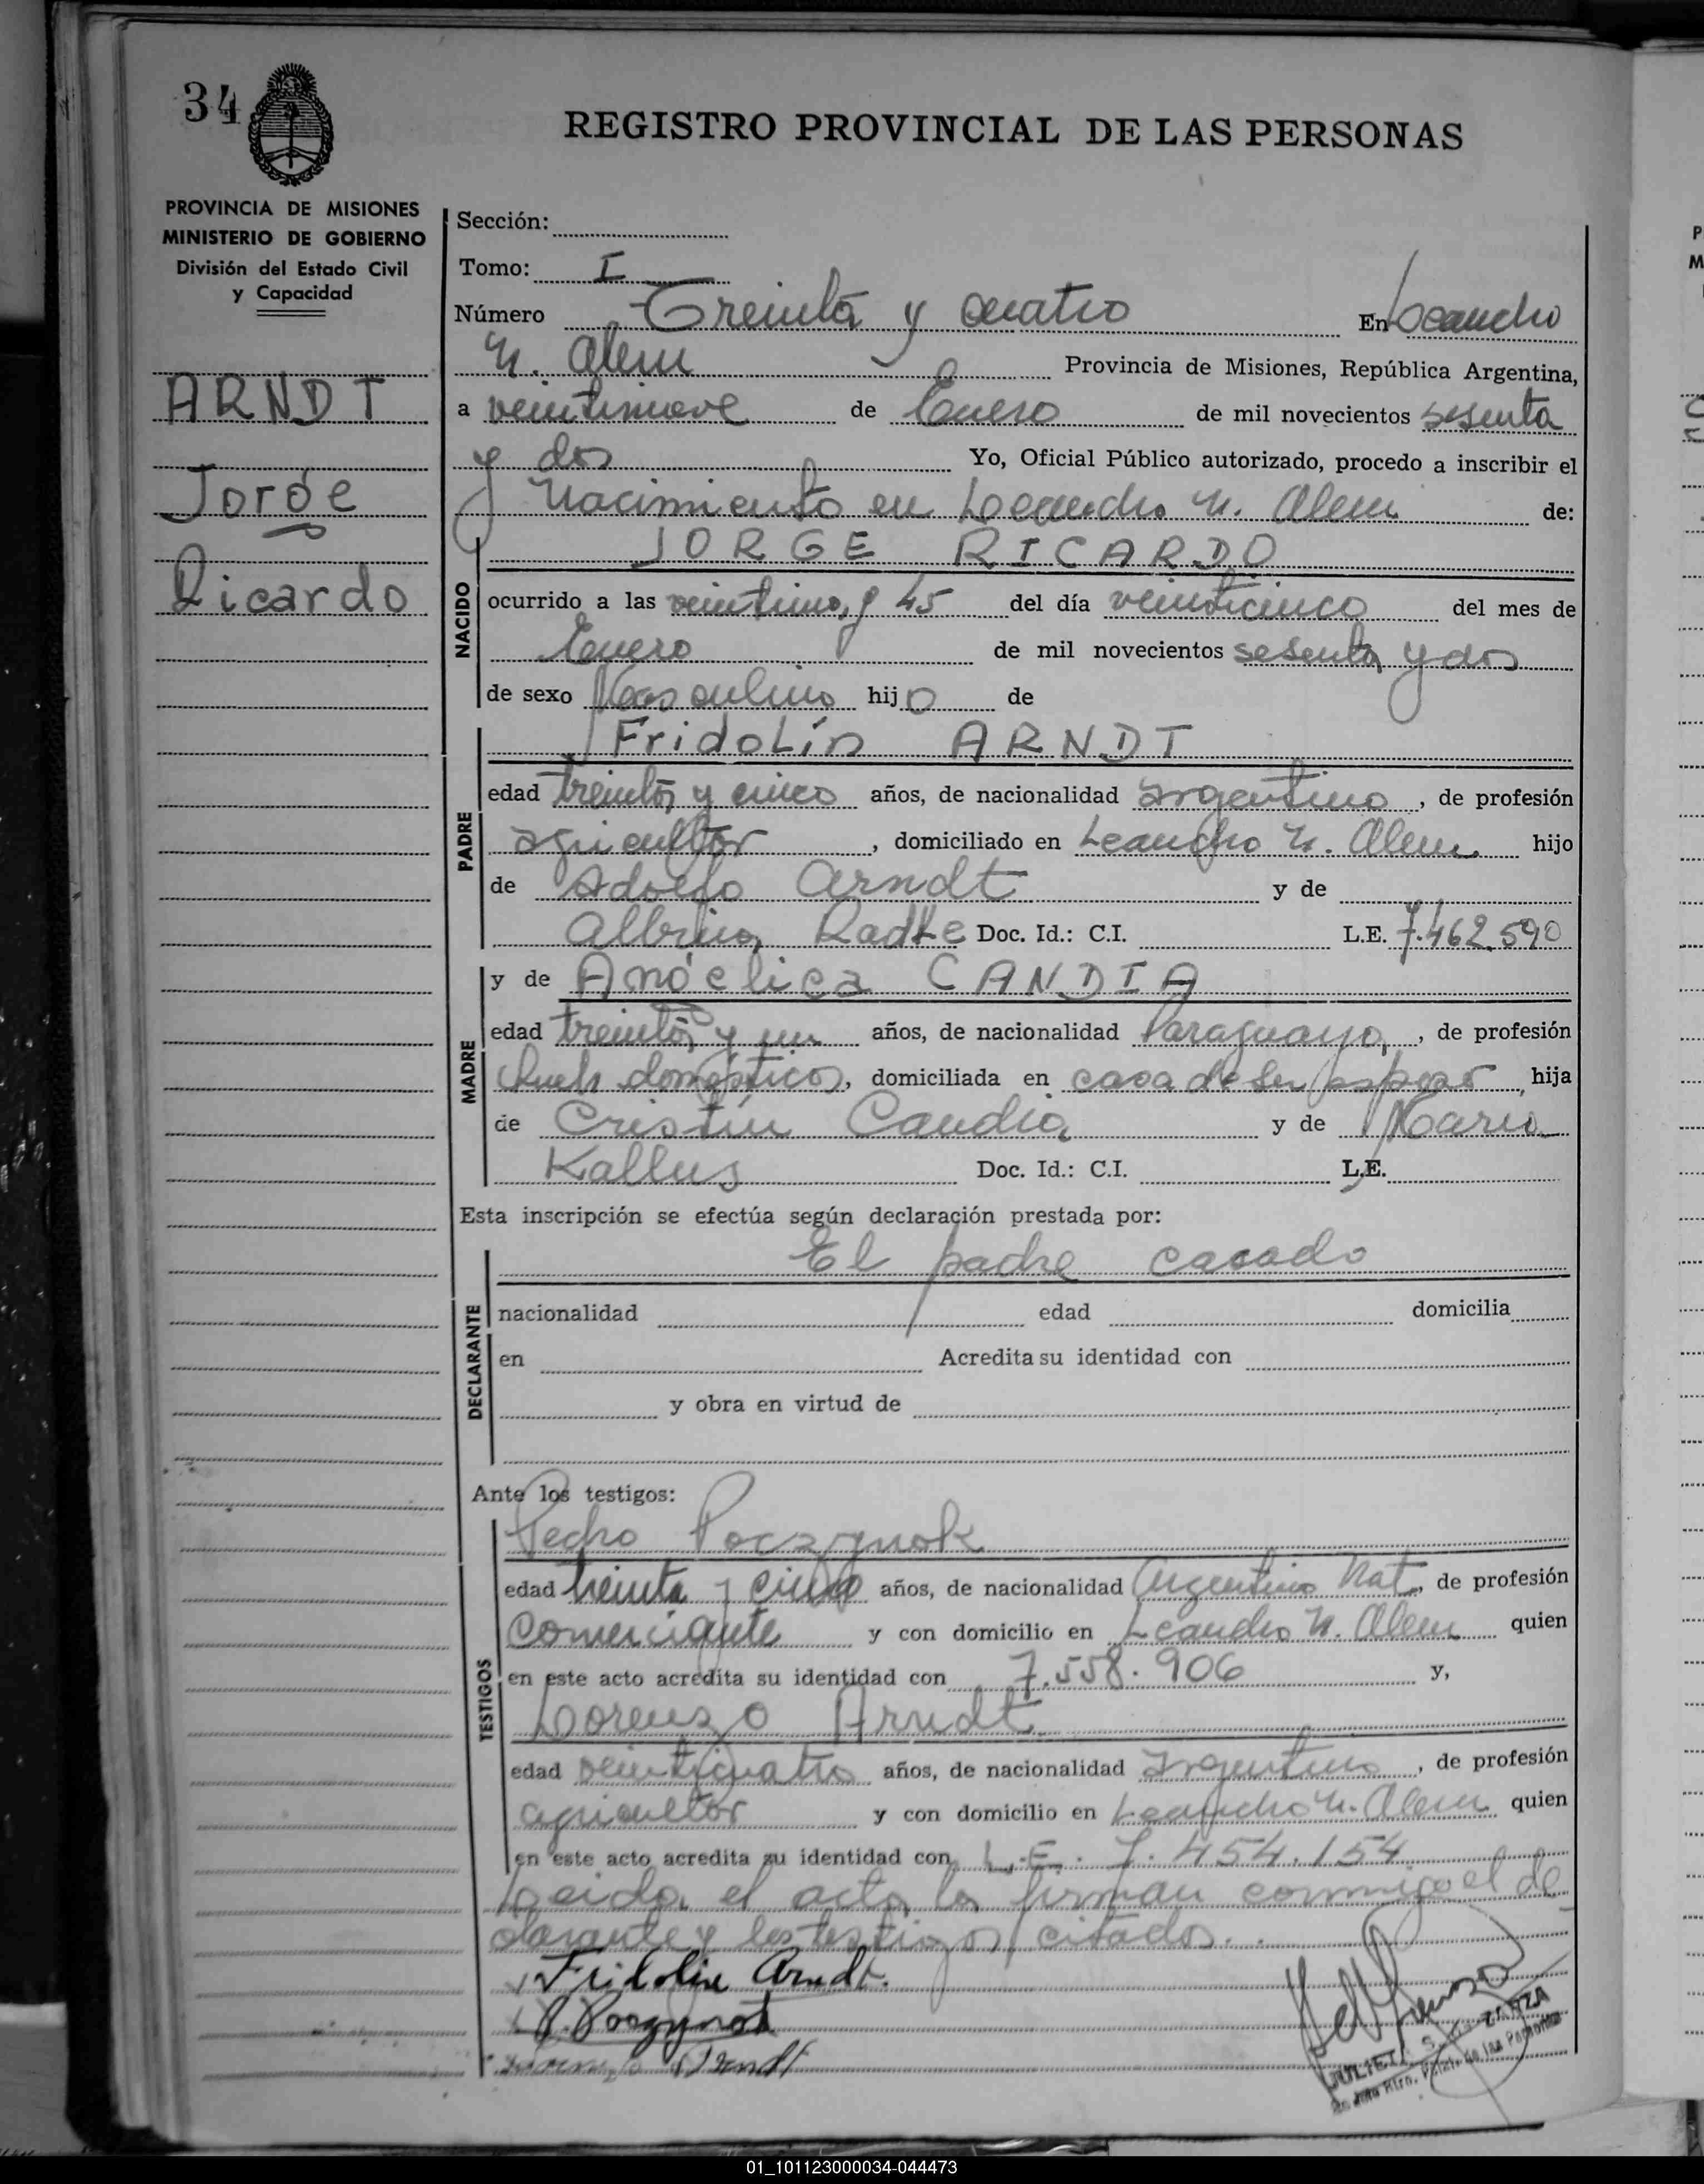 34
REGISTRO PROVINCIAL DE LAS PERSONAS
PROVINCIA DE MISIONES
MINISTERIO DE GOBIERNO
División del Estado Civil
y Capacidad
ARNDT
Jorge
Ricardo
Sección:
Tomo: I
Número Treinta y cuatro En Leandro
N. Alem Provincia de Misiones, República Argentina,
a veintinueve de Enero de mil novecientos sesenta
y dos Yo, Oficial Público autorizado, procedo a inscribir el
Nacimiento en Leandro N. Alem de:
NACIDO
JORGE RICARDO
ocurrido a las veintiuno y 45 del día veinticinco del mes de
Enero de mil novecientos sesenta y dos
de sexo Masculino hijo de
PADRE
Fridolín ARNDT
edad treinta y cinco años, de nacionalidad argentino, de profesión
agricultor, domiciliado en Leandro N. Alem hijo
de Adolfo Arndt y de
Albina Radke Doc. Id.: C.I. L.E. 7.462.590
MADRE
y de Angélica CANDIA
edad treinta y un años, de nacionalidad Paraguaya, de profesión
Queh. domésticos, domiciliada en casa de su esposo, hija
de Cristín Candia y de María
Kallus Doc. Id.: C.I. L.E.
Esta inscripción se efectúa según declaración prestada por:
DECLARANTE
El padre casado
nacionalidad edad domicilia
en Acredita su identidad con
y obra en virtud de
Ante los testigos:
TESTIGOS
Pedro Poczynok
edad treinta y cinco años, de nacionalidad Argentino Nat., de profesión
comerciante y con domicilio en Leandro N. Alem quien
en este acto acredita su identidad con 7.558.906 y,
Lorenzo Arndt
edad veinticuatro años, de nacionalidad argentino, de profesión
agricultor y con domicilio en Leandro N. Alem quien
en este acto acredita su identidad con L.E. 7.454.154
Leida el acta la firman conmigo el de
clarante y los testigos citados.
Fridolin Arndt.
P. Poczynok
Lorenzo Arndt
01_101123000034-044473